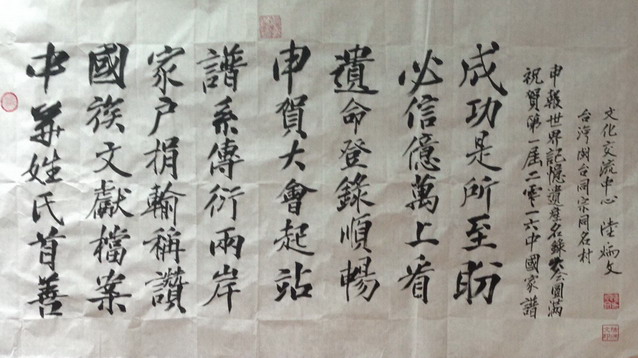 中華姓氏首善
國族文獻檔案
家戶捐輸稱讚
譜系傳衍兩岸
申賀大會起站
遺命登錄順暢
必信億萬上看
成功是所至盼
祝賀第一屆二零一六中國家譜
申報世界記憶遺產名錄大会圓滿
台灣閩台同宗同名村
文化交流中心 陸炳文